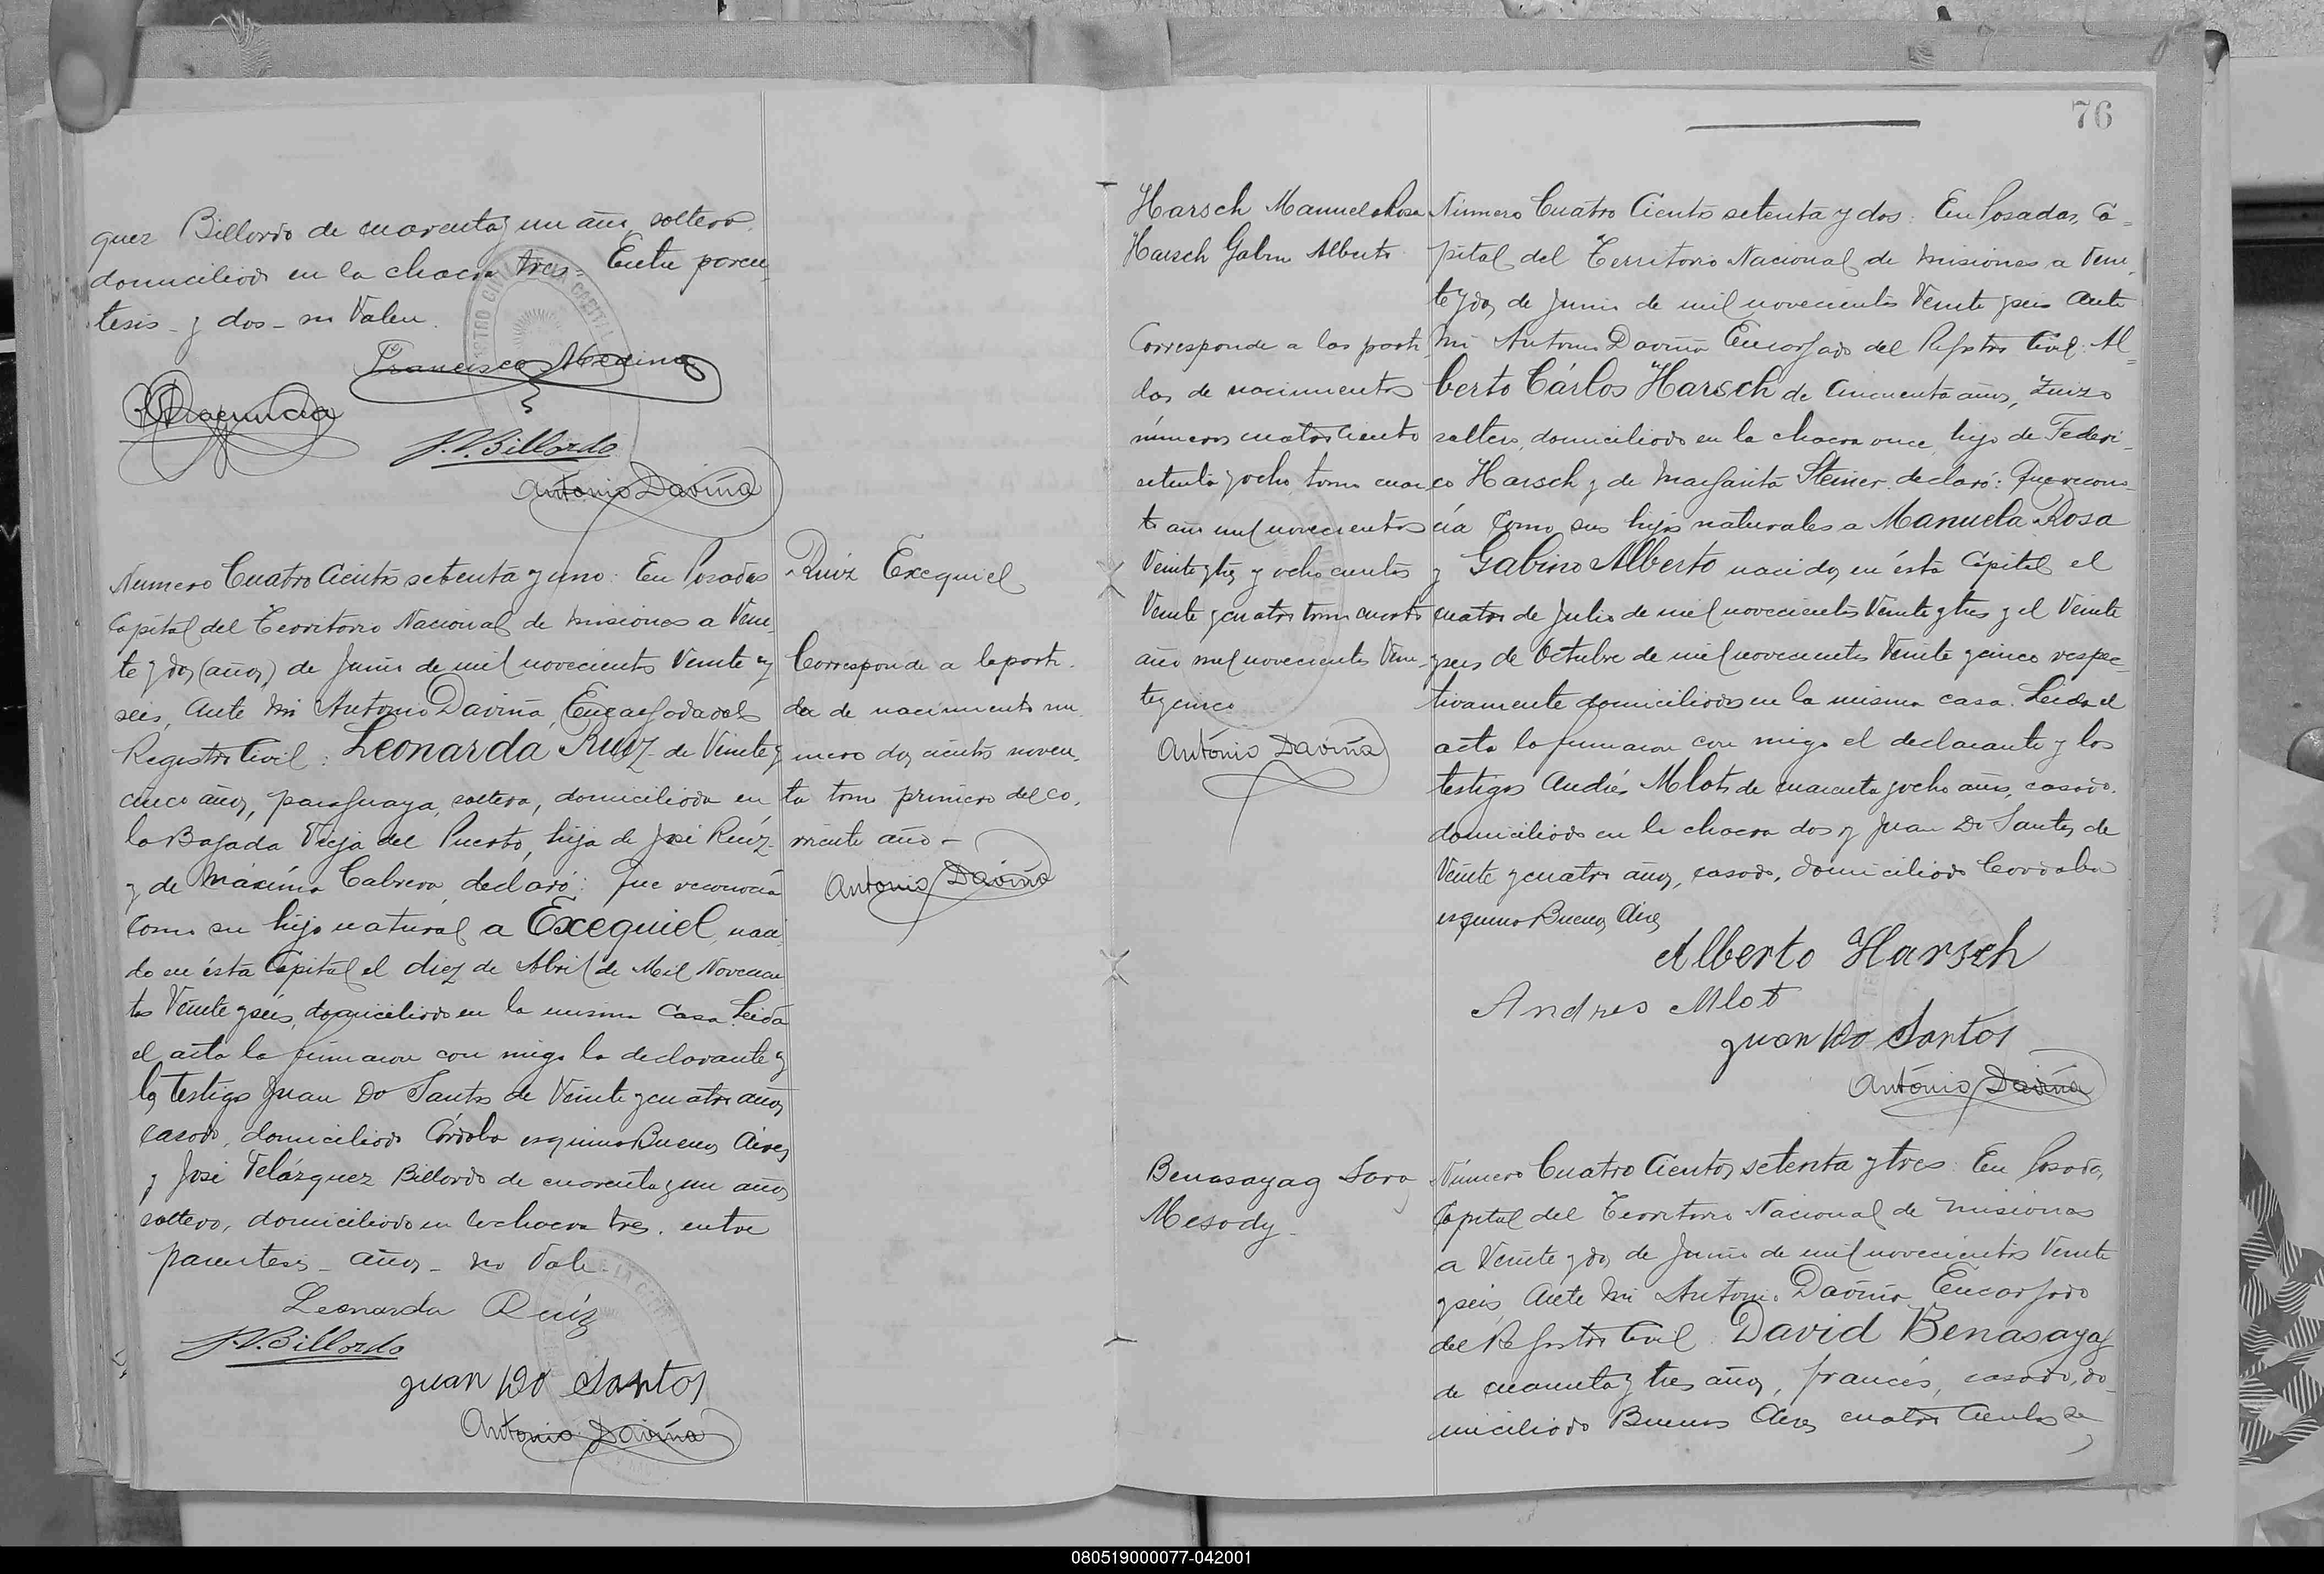 quez Billordo de cuarenta y un años, soltero,
domiciliado en la chacra tres - Entre paren
tesis - y dos - no Valen.
Francisco Medina
J.V. Billordo
Antonio Daviña
Numero Cuatro Cientos setenta y uno: En Posadas
Capital del Territorio Nacional de Misiones a Vein
te y dos (años) de Junio de mil novecientos Veinte y
seis, Ante Mi Antonio Daviña, Encargado del
Registro Civil: Leonarda Ruiz de Veinte y
cinco años, paraguaya, soltera, domiciliada en
la Bajada Vieja del Puerto, hija de José Ruíz
y de Máxima Cabrera, declaró: Que reconocía
como su hijo natural a Exequiel, naci
do en ésta Capital el diez de Abril de Mil Novecien
tos Veinte y seis, domiciliado en la misma casa. Leida
el acta la firmaron con migo la declarante y
los testigo Juan Do Santos de Veinte y cuatro años
casado, domiciliado Córdoba esquina Buenos Aires
y José Velázquez Billordo de cuarenta y un años
soltero, domiciliado en la chacra tres. entre
parentesis - años - no Vale.
Leonarda Ruíz
J.V. Billordo
Juan Do Santos
Antonio Daviña
Ruiz Exequiel
Corresponde a la parti
da de nacimiento nu
mero dos cientos noven
ta tomo primero del co
rriente año -
Antonio Daviña
76
Harsch Manuela Rosa
Harsch Gabin Alberto
Corresponde a las parti
das de nacimientos
números cuatro ciento
setenta y ocho tomo cuar
to año mil novecientos
Veinte y tres y ocho cientos
Veinte y cuatro tomo cuarto
año mil novecientos Vein
te y cinco
Antonio Daviña
Número Cuatro Cientos setenta y dos: En Posadas, Ca=
pital del Territorio Nacional de Misiones a Vein
te y dos de Junio de mil novecientos Veinte y seis Ante
Mi Antonio Daviña Encargado del Registro Civil: Al=
berto Cárlos Harsch de Cincuenta años, Zuizo
soltero, domiciliado en la chacra once, hijo de Federi-
co Harsch y de Margarita Steiner, declaró: Que recono-
cía como sus hijos naturales a Manuela Rosa
y Gabino Alberto nacidos en ésta Capital el
cuatro de Julio de mil novecientos Veinte y tres y el Veinte
y seis de Octubre de mil novecientos Veinte y cinco respec
tivamente domiciliados en la misma casa. Leida el
acta la firmaron con migo el declarante y los
testigos Andrés Mlot de cuarenta y ocho años, casado,
domiciliado en la chacra dos y Juan Do Santos de
Veinte y cuatro años, casado, domiciliado Cordoba
esquina Buenos Aires
Alberto Harsch
Andres Mlot
Juan Do Santos
Antonio Daviña
Benasayag Sara
Mesody.
Número Cuatro Cientos setenta y tres: En Posadas,
Capital del Territorio Nacional de Misiones
a Veinte y dos de Junio de mil novecientos Veinte
y seis Ante Mi Antonio Daviña Encargado
del Registro Civil: David Benasayag
de cuarenta y tres años, francés, casado, do
miciliado Buenos Aires cuatro cientos se
080519000077-042001